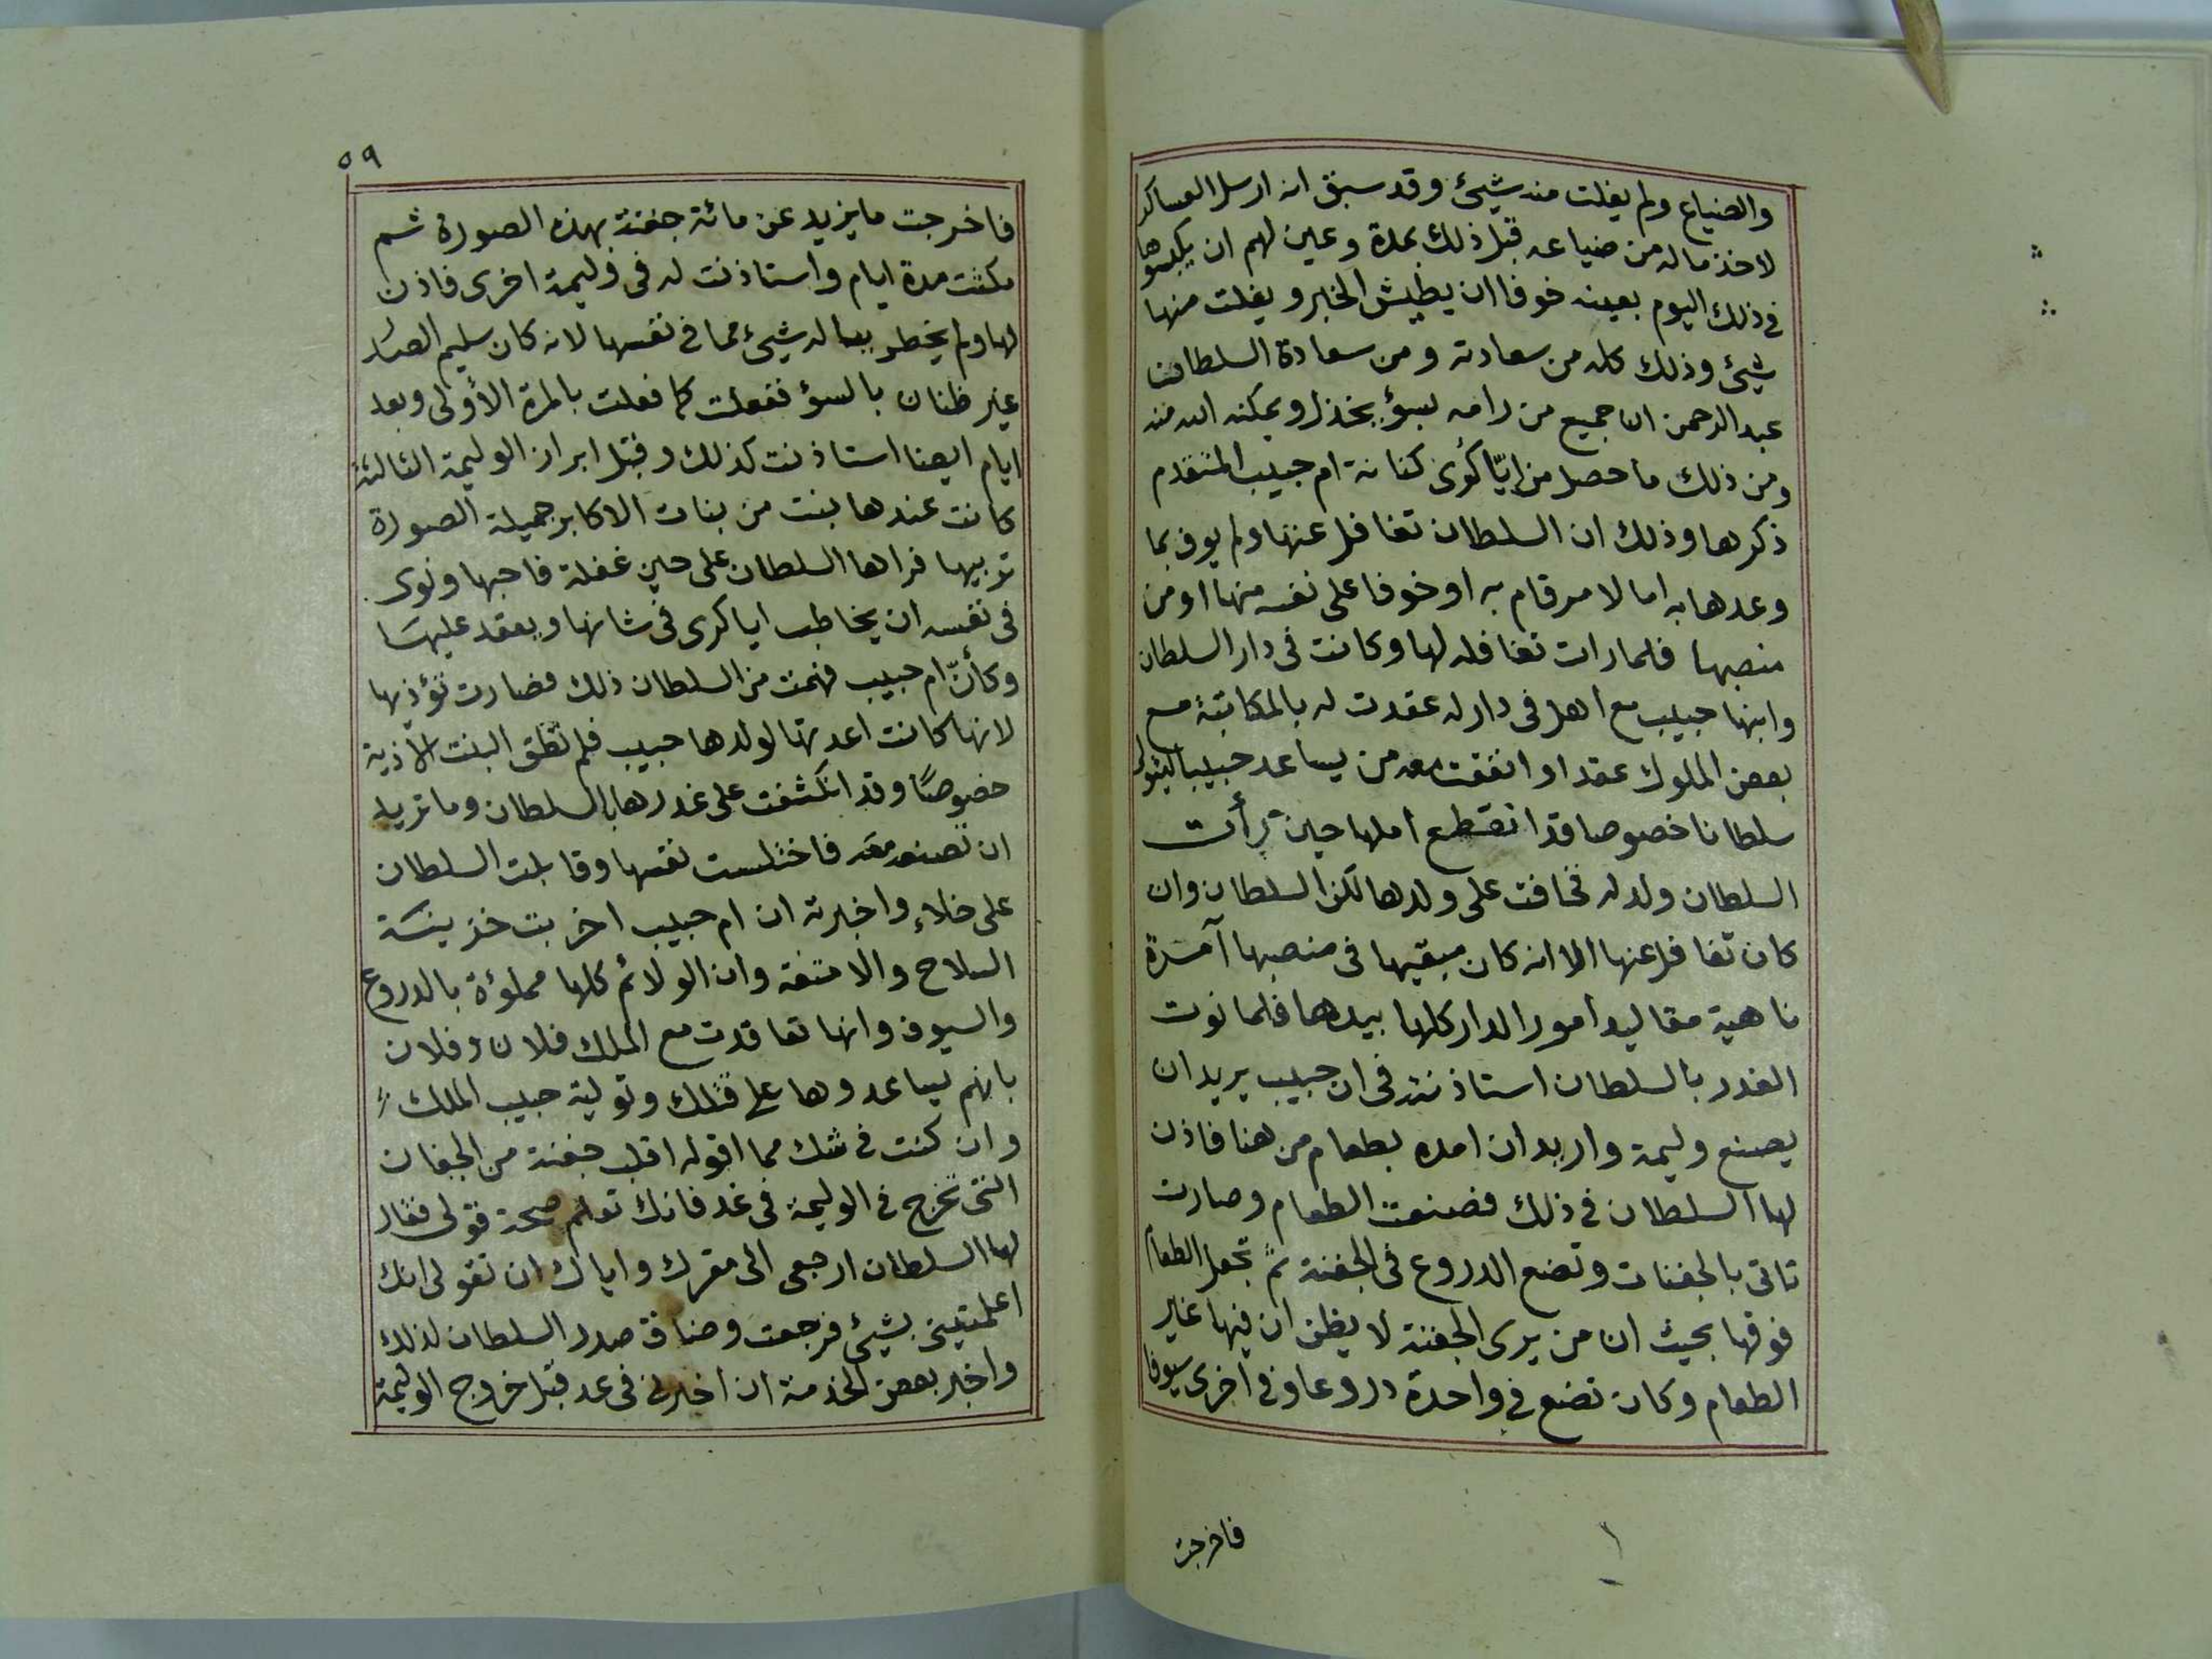 والضياع ولم يفلت منه شيئ وقد سبق انه ارسل العساكر
لاخذ ماله من ضياعه قبل ذلك بمدة وعين لهم ان يكبسوها
في ذلك اليوم بعينه خوفا ان يطيش الخبر و يفلت منها
شيئ وذلك كله من سعادته و من سعادة السلطان
عبد الرحمن ان جميع من رامه بسؤ يخذل و يمكنه الله منه
ومن ذلك ما حصل من ايّا كُوى كنانة ام حبيب المتقدم
ذكرها وذلك ان السلطان تغافل عنها ولم يوف بما
وعدها به اما لامر قام به او خوفا على نفسه منها او من
منصبها فلما رات تغافله لها وكانت في دار السلطان
وابنها حبيب مع اهل في دار له عقدت له بالمكاتبة مع
بعض الملوك عقدا و اتفقت معه من يساعد حبيبا ليتولى
سلطانا خصوصا قد انقطع املها حين رأت
السلطان ولد له فخافت على ولدها لكن السلطان وان
كان تغافل عنها الا انه كان مبقيها في منصبها آمرة
ناهية مقاليد امور الدار كلها بيدها فلما نوت
الغدر بالسلطان استاذنته في ان حبيب يريد ان
يصنع وليمة واريد ان امده بطعام من هنا فاذن
لها السلطان في ذلك فصنعت الطعام وصارت
تاتي بالجفنات وتضع الدروع في الجفنة ثم تجعل الطعام
فوقها بحيث ان من يرى الجفنة لا يظن ان فيها غير
الطعام وكان تضع في واحدة دروعا و في اخرى سيوفا
فاخرجت
٥٩
فاخرجت ما يزيد عن مائة جفنة بهذه الصورة ثم
مكثت مدة ايام واستاذنت له في وليمة اخرى فاذن
لها ولم يخطر بباله شيئ مما في نفسها لانه كان سليم الصدر
غير ظنان بالسؤ ففعلت كما فعلت بالمرة الأولى وبعد
ايام ايضا استاذنت كذلك وقبل ابراز الوليمة الثالثة
كانت عندها بنت من بنات الاكابر جميلة الصورة
تربيها فراها السلطان على حين غفلة فاحبها ونوى
في نفسه ان يخاطب ايا كرى في شانها ويعقد عليها
وكأنّ ام حبيب فهمت من السلطان ذلك فصارت تؤذيها
لانها كانت اعدتها لولدها حبيب فلم تطق البنت الأذية
خصوصًا وقد انكشفت على غدرها بالسلطان وما تريد
ان تصنعه معه فاختلست نفسها وقابلت السلطان
على خلاء واخبرته ان ام حبيب اخربت خزينة
السلاح والامتعة وان الولائم كلها مملوءة بالدروع
والسيوف وانها تعاقدت مع الملك فلان وفلان
بانهم يساعدوها على قتلك وتولية حبيب الملك
وان كنت في شك مما اقوله اقلب جفنة من الجفان
التي تخرج في الوليمة في غد فانك تعلم صحة قولى فقال
لها السلطان ارجعى الى مقرك واياك ان تقولى انك
اعلمتينى بشيئ فرجعت وضاق صدر السلطان لذلك
واخبر بعض الخدمة ان اخبرنى في غد قبل خروج الوليمة